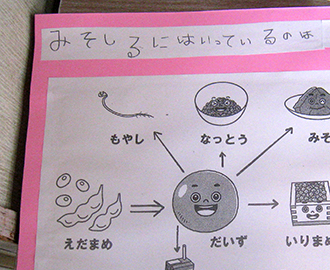 みそしるにはいっているのは
もやし
なっとう
みそ
えだまめ
だいず
いりまめ